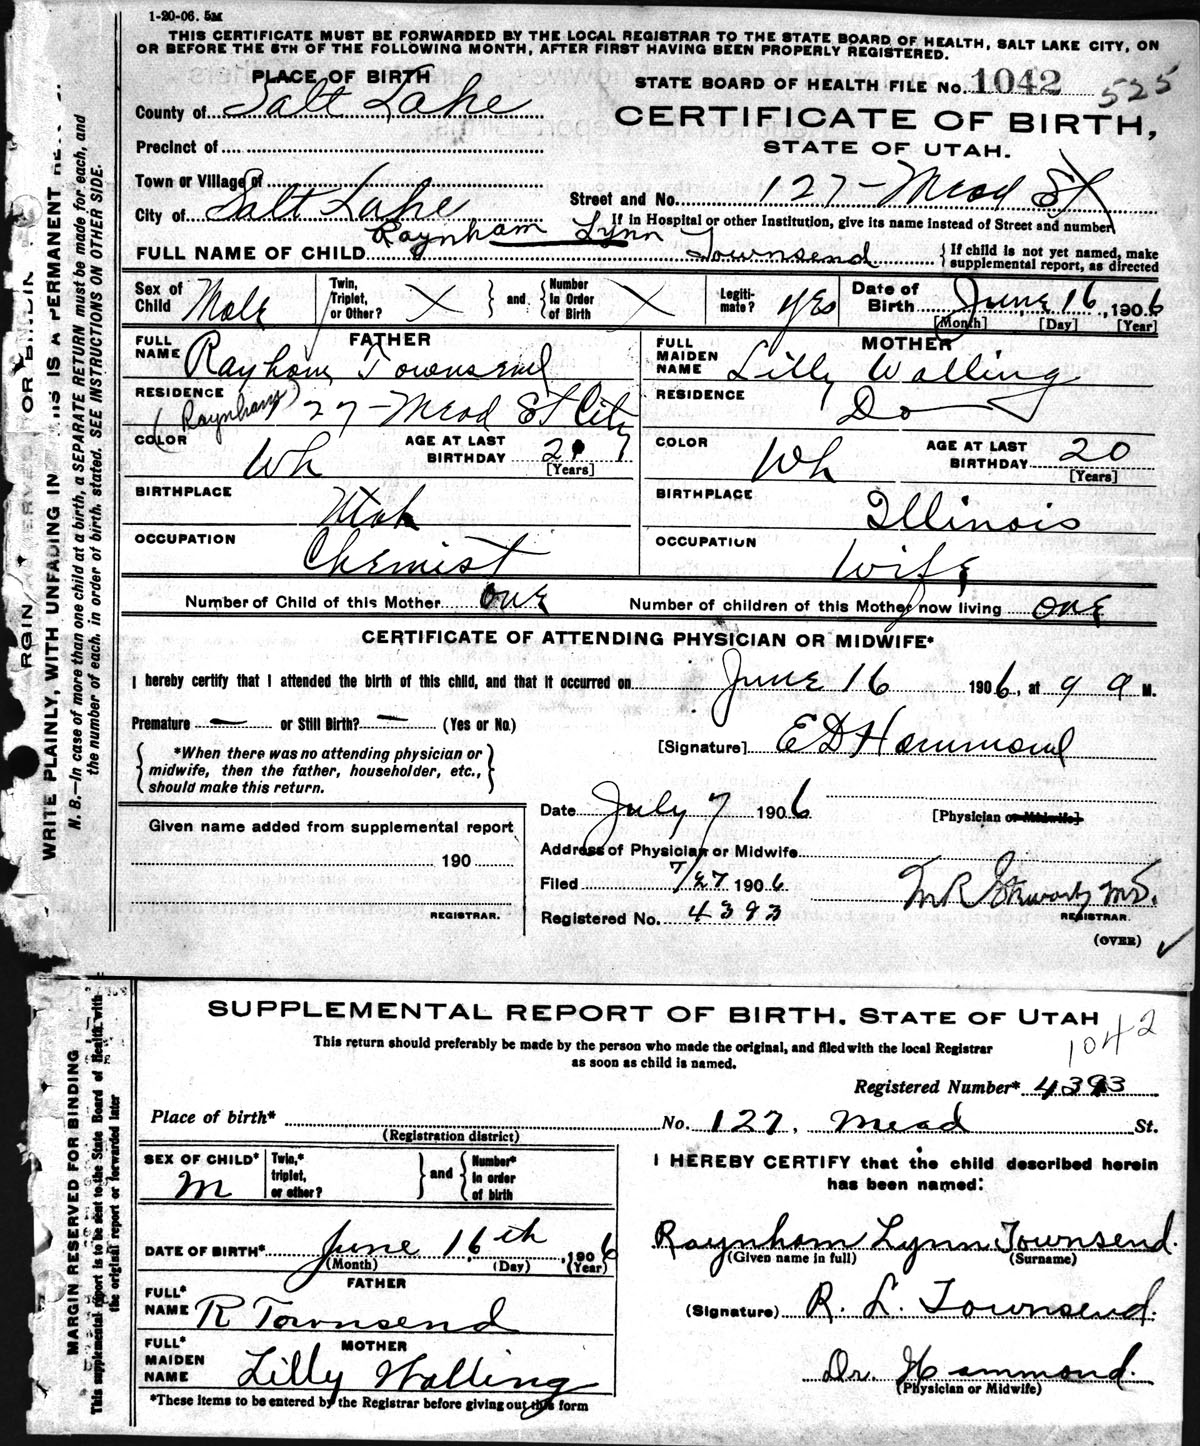 1-20-06. 5M
THIS CERTIFICATE MUST BE FORWARDED BY THE LOCAL REGISTRAR TO THE STATE BOARD OF HEALTH, SALT LAKE CITY, ON
OR BEFORE THE 5TH OF THE FOLLOWING MONTH, AFTER FIRST HAVING BEEN PROPERLY REGISTERED.
PLACE OF BIRTH
STATE BOARD OF HEALTH FILE No. 1042 525
County of Salt Lake
CERTIFICATE OF BIRTH,
STATE OF UTAH.
Precinct of
Town or Village of
Street and No. 127 - Mead St
City of Salt Lake
If in Hospital or other Institution, give its name instead of Street and number
FULL NAME OF CHILD Raynham Lynn Townsend
{If child is not yet named, make
supplemental report, as directed
Sex of Child Male
Twin, Triplet, or Other? X } and { Number In Order of Birth X
Legitimate? yes
Date of Birth June 16, 1906
[Month] [Day] [Year]
FATHER
FULL NAME Rayham Townsend
RESIDENCE 127 - Mead St City
(Raynham)
COLOR Wh
AGE AT LAST BIRTHDAY 21
[Years]
BIRTHPLACE Utah
OCCUPATION Chemist
MOTHER
FULL MAIDEN NAME Lilly Walling
RESIDENCE Do
COLOR Wh
AGE AT LAST BIRTHDAY 20
[Years]
BIRTHPLACE Illinois
OCCUPATION Wife
Number of Child of this Mother one Number of children of this Mother now living one
CERTIFICATE OF ATTENDING PHYSICIAN OR MIDWIFE*
I hereby certify that I attended the birth of this child, and that it occurred on June 16 1906, at 9 a M.
Premature — or Still Birth? — (Yes or No)
[Signature] E D Hammond
{*When there was no attending physician or
midwife, then the father, householder, etc.,
should make this return.}
Date July 7 1906
[Physician or Midwife]
Given name added from supplemental report
Address of Physician or Midwife
190
Filed 7/27 1906
M.D.
REGISTRAR.
Registered No. 4393
REGISTRAR.
(OVER)
WRITE PLAINLY, WITH UNFADING IN THIS IS A PERMANENT
N. B.—In case of more than one child at a birth, a SEPARATE RETURN must be made for each, and
the number of each, in order of birth, stated. SEE INSTRUCTIONS ON OTHER SIDE.
SUPPLEMENTAL REPORT OF BIRTH, STATE OF UTAH
1042
This return should preferably be made by the person who made the original, and filed with the local Registrar
as soon as child is named.
Registered Number* 4393
Place of birth* No. 127, Mead St.
(Registration district)
SEX OF CHILD* M
Twin,* triplet, or other? } and { Number* in order of birth
I HEREBY CERTIFY that the child described herein
has been named:
DATE OF BIRTH* June 16th, 1906
(Month) (Day) (Year)
Raynham Lynn Townsend.
(Given name in full) (Surname)
FATHER
FULL* NAME R Townsend
(Signature) R. L. Townsend.
MOTHER
FULL* MAIDEN NAME Lilly Walling
Dr. Hammond.
(Physician or Midwife)
*These items to be entered by the Registrar before giving out this form
MARGIN RESERVED FOR BINDING
This supplemental report is to be sent to the State Board of Health with
the original report or forwarded later